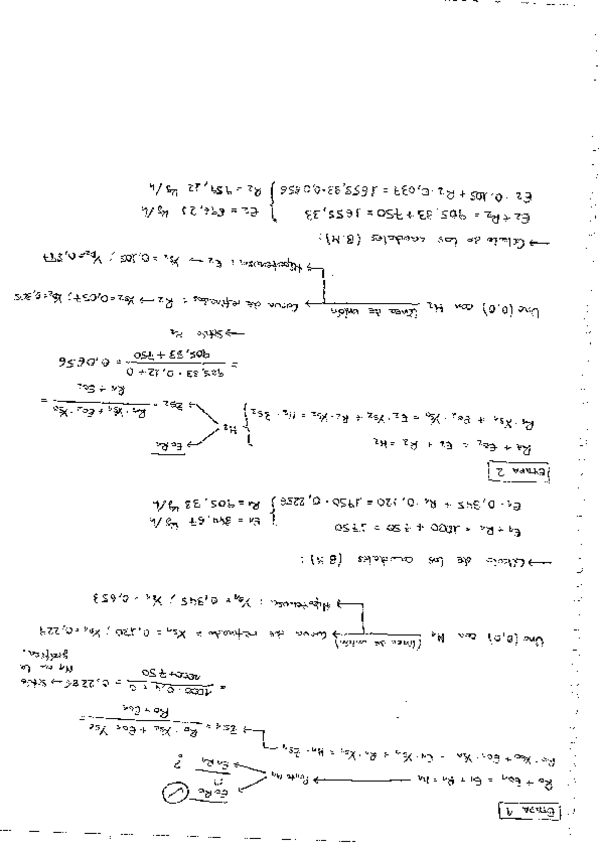 ETAPA 1
E₀R₀
R₀ + E₀₁ = E₁ + R₁ = M₁ → Punto M₁
E₁R₁ ?
R₀ · Xs₀ + E₀₁ · Ys₀ = E₁ · Ys₁ + R₁ · Xs₁ = M₁ · Zs₁
→ Zs₁ = (R₀ · Xs₀ + E₀₁ · Ys₀) / (R₀ + E₀₁) =
= (1000 · 0,4 + 0) / (1000 + 750) = 0,2286 → Sitúo M₁ en la gráfica.
Uno (0,0) con M₁ (línea de unión) → Curva de refinado = Xs₁ = 0,120 ; 0,224
→ Hipotenusa : Ys₁ = 0,345 ; 0,653
→ Cálculo de los caudales (B.M) :
E₁ + R₁ = 1000 + 750 = 1750
E₁ · 0,345 + R₁ · 0,120 = 1750 · 0,2286
E₁ = 844,67 kg/h
R₁ = 905,33 kg/h
ETAPA 2
R₁ + E₀₂ = E₂ + R₂ = M₂
R₁ · Xs₁ + E₀₂ · Ys₀ = E₂ · Ys₂ + R₂ · Xs₂ = M₂ · Zs₂
M₂
→ E₀R₁
→ Zs₂ = (R₁ · Xs₁ + E₀₂ · Ys₀) / (R₁ + E₀₂) =
= (905,33 · 0,12 + 0) / (905,33 + 750) = 0,0656
→ Sitúo M₂
Uno (0,0) con M₂ línea de unión → Curva de refinado : R₂ → Xs₂ = 0,037 ;
→ Hipotenusa : E₂ → Ys₂ = 0,105 ;
→ Cálculo de los caudales (B.M) :
E₂ + R₂ = 905,33 + 750 = 1655,33
E₂ · 0,105 + R₂ · 0,037 = 1655,33 · 0,0656
E₂ = 696,23 kg/h
R₂ = 959,22 kg/h